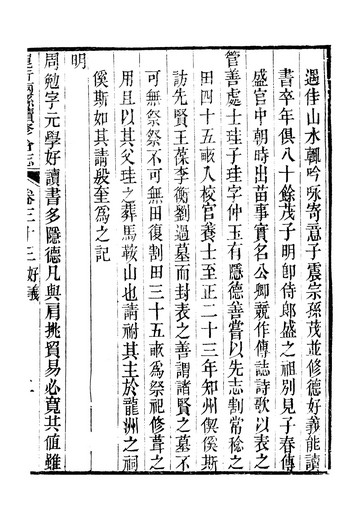 遇佳山水輒吟咏寄意子震宗孫茂並修德好義能讀
書卒年俱八十餘茂子明卽侍郞盛之祖別見子春傳
盛官中朝時出苗事實名公卿競作傳誌詩歌以表之
管善處士珪子珪字仲玉有隱德善嘗以先志割常稔之
田四十五畝入校官養士至正二十三年知州偰傒斯
訪先賢王葆李衡劉過墓而封表之善謂諸賢之墓不
可無祭祭不可無田復割田三十五畝爲祭祀修葺之
用且以其父珪之葬馬鞍山也請祔其主於龍洲之祠
傒斯如其請殷奎爲之記
明
周勉字元學好讀書多隱德凡與肩挑貿易必寬其值雖
卷三十三 好義